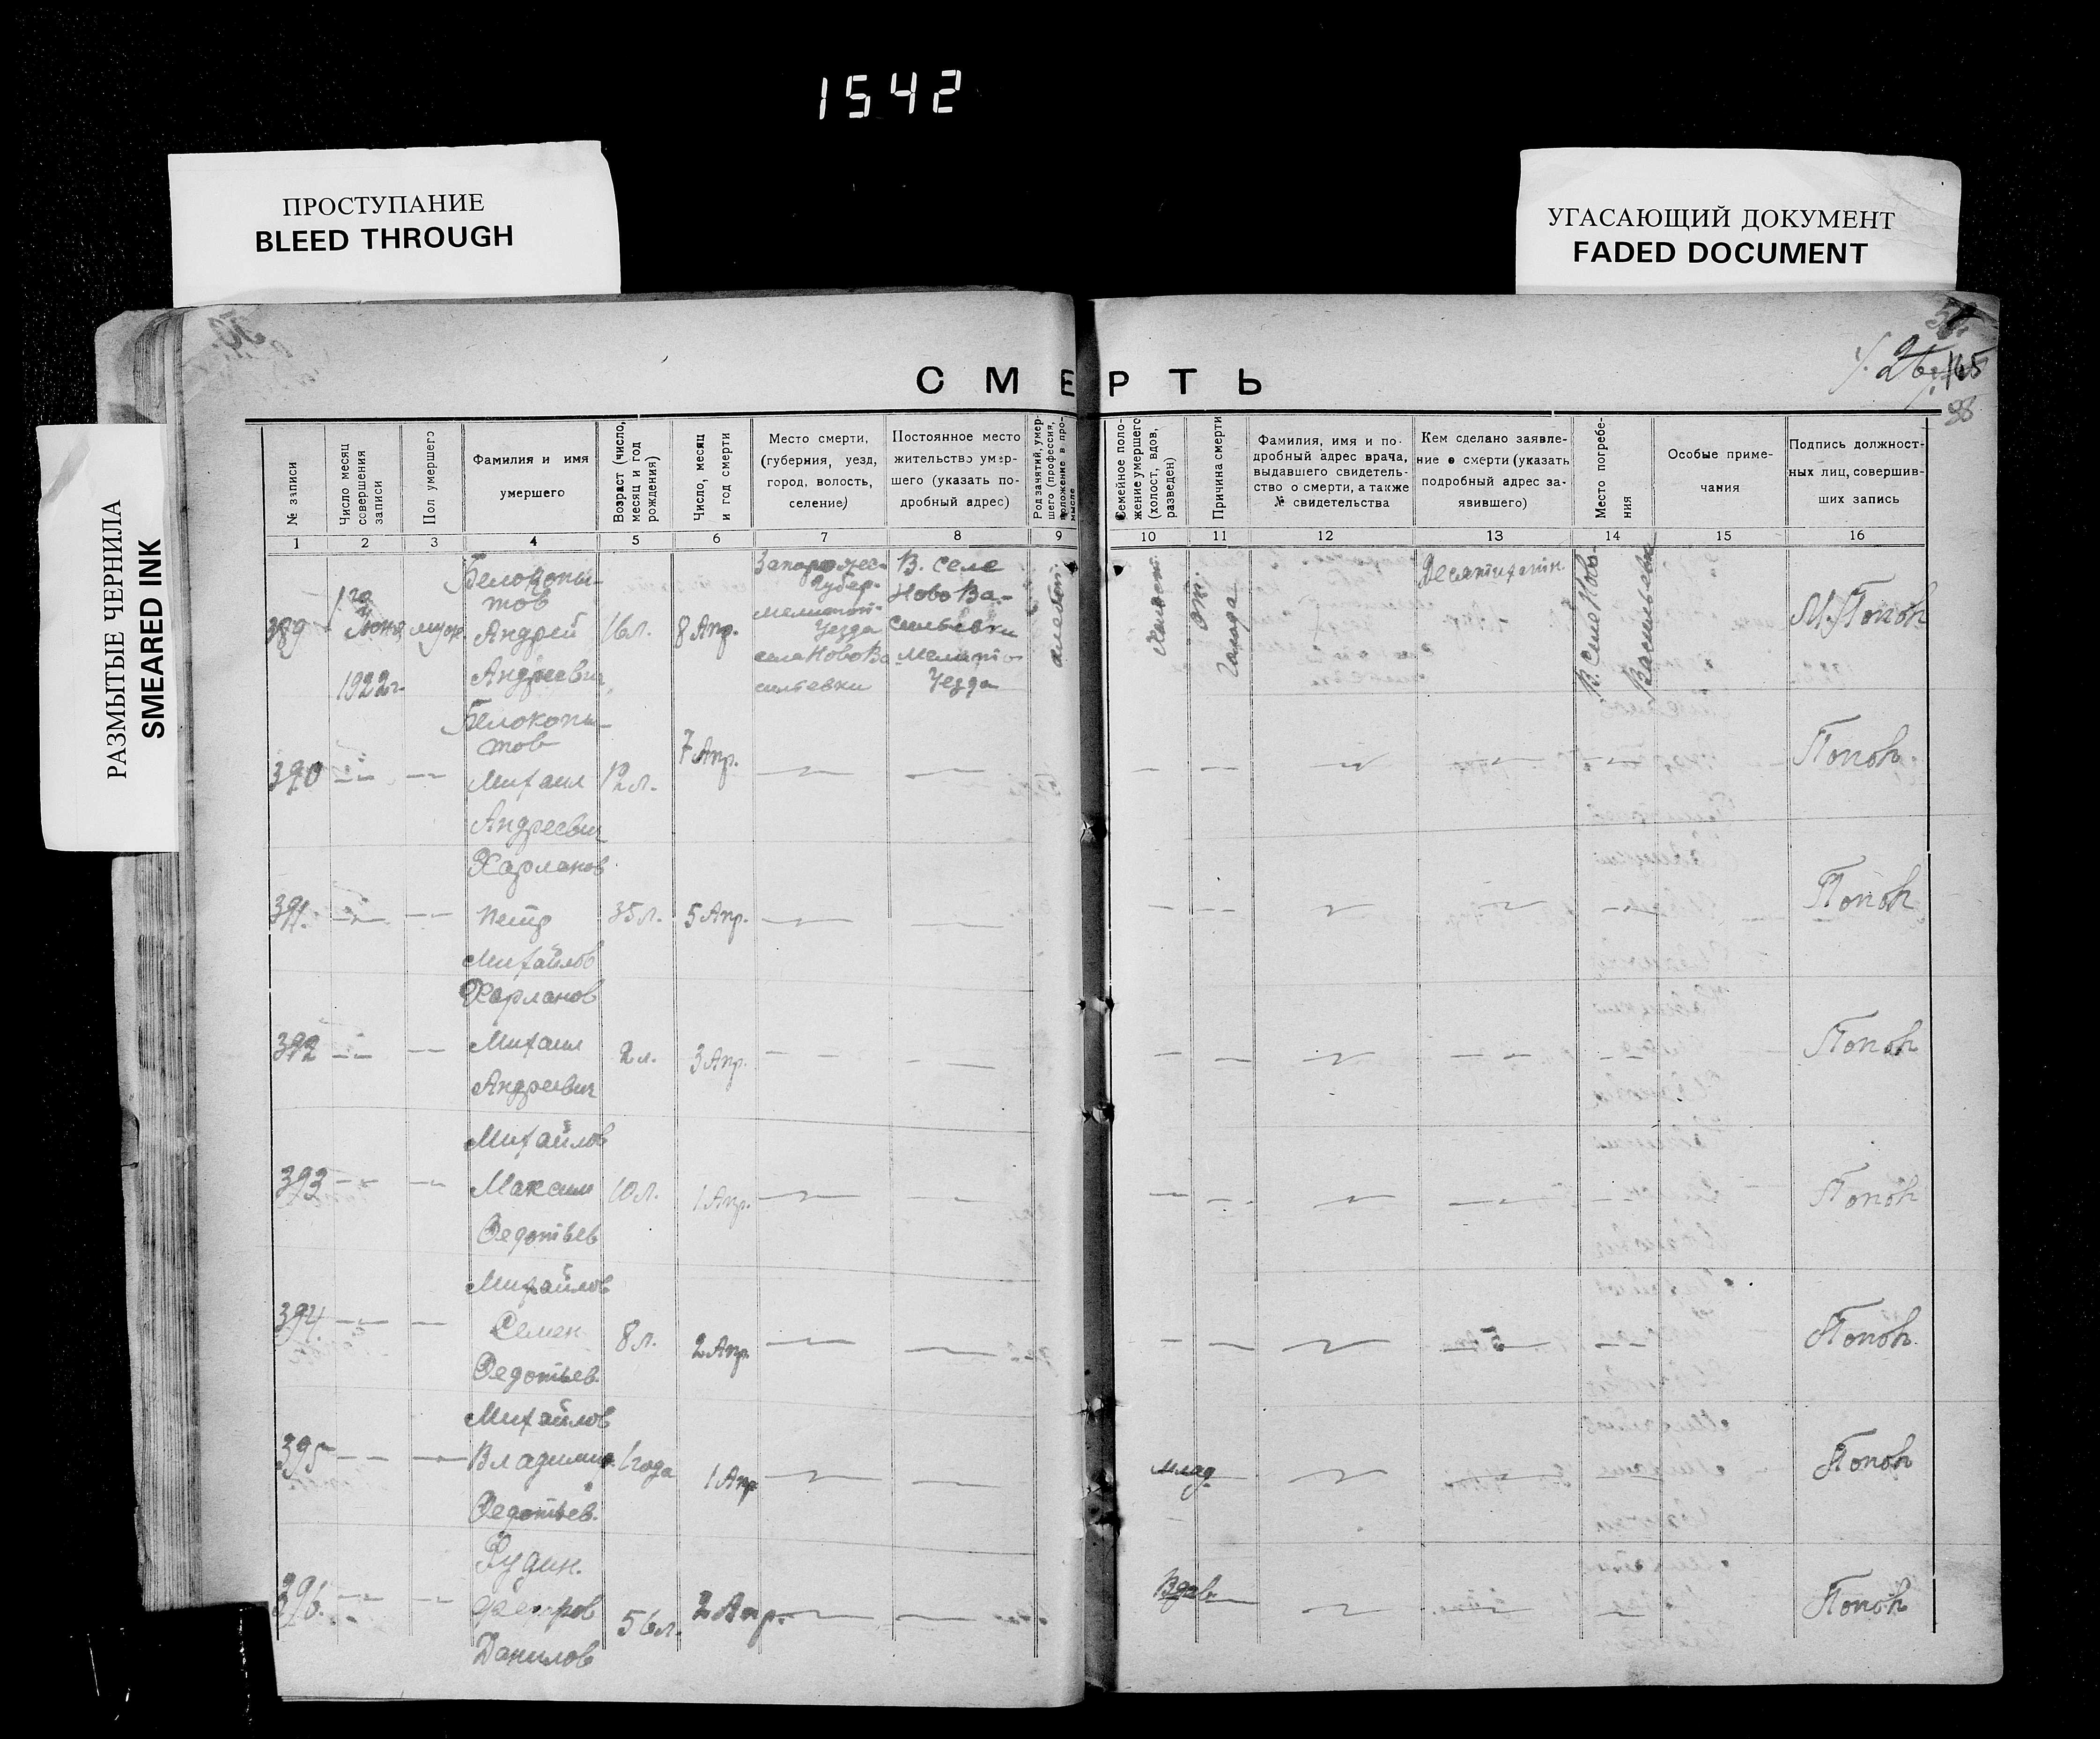 1542
ПРОСТУПАНИЕ
BLEED THROUGH
УГАСАЮЩИЙ ДОКУМЕНТ
FADED DOCUMENT
РАЗМЫТЫЕ ЧЕРНИЛА
SMEARED INK
165
38
СМЕРТЬ
№ записи
Число месяц
совершения
записи
Пол умершего
Фамилия и имя
умершего
Возраст (число,
месяц и год
рождения)
Число, месяц
и год смерти
Место смерти,
(губерния, уезд,
город, волость,
селение)
Постоянное место
жительство умер-
шего (указать по-
дробный адрес)
Род занятий, умер-
шего (профессия,
положение в про-
мысле
Семейное поло-
жение умершего
(холост, вдов,
разведен)
Причина смерти
Фамилия, имя и по-
дробный адрес врача,
выдавшего свидетель-
ство о смерти, а также
№ свидетельства
Кем сделано заявле-
ние о смерти (указать
подробный адрес за-
явившего)
Место погребе-
ния
Особые приме-
чания
Подпись должност-
ных лиц, совершив-
ших запись
1 2 3 4 5 6 7 8 9 10 11 12 13 14 15 16
389
1го
Июня
1922г.
муж.
Белокопы-
тов
Андрей
Андреевич
16л.
8 Апр.
Запорожес-
Губер.
Мелитоп.
Уезда
села Ново Ва
сильевки
В. селе
Ново Ва-
сильевки
Мелито
Уезда
хлебоп.
Холост.
От.
голода
Десятидвор
В. Селе Ново-
Васильевки
М. Попов
390 — —
Белокопы-
тов
Михаил
Андреевич
12л.
7 Апр.
— — — — — — —
Попов
391. — —
Харланов
Петр
Михайлов
35 л.
5 Апр.
— — — — — — —
Попов
392 — —
Харланов
Михаил
Андреевич
2л.
3 Апр.
— — — — — — —
Попов
393 — —
Михайлов
Максим
Федотьев
10 л.
1 Апр.
— — — — — — —
Попов
394. — —
Михайлов
Семен
Федотьев.
8 л.
2 Апр.
— — — — — — —
Попов
395 — —
Михайлов
Владимир
Федотьев.
1 года
1 Апр
— — млад. — — — —
Попов
396. — —
Рудин.
Федоров
Данилов
56л.
2 Апр.
— — Вдов. — — — —
Попов